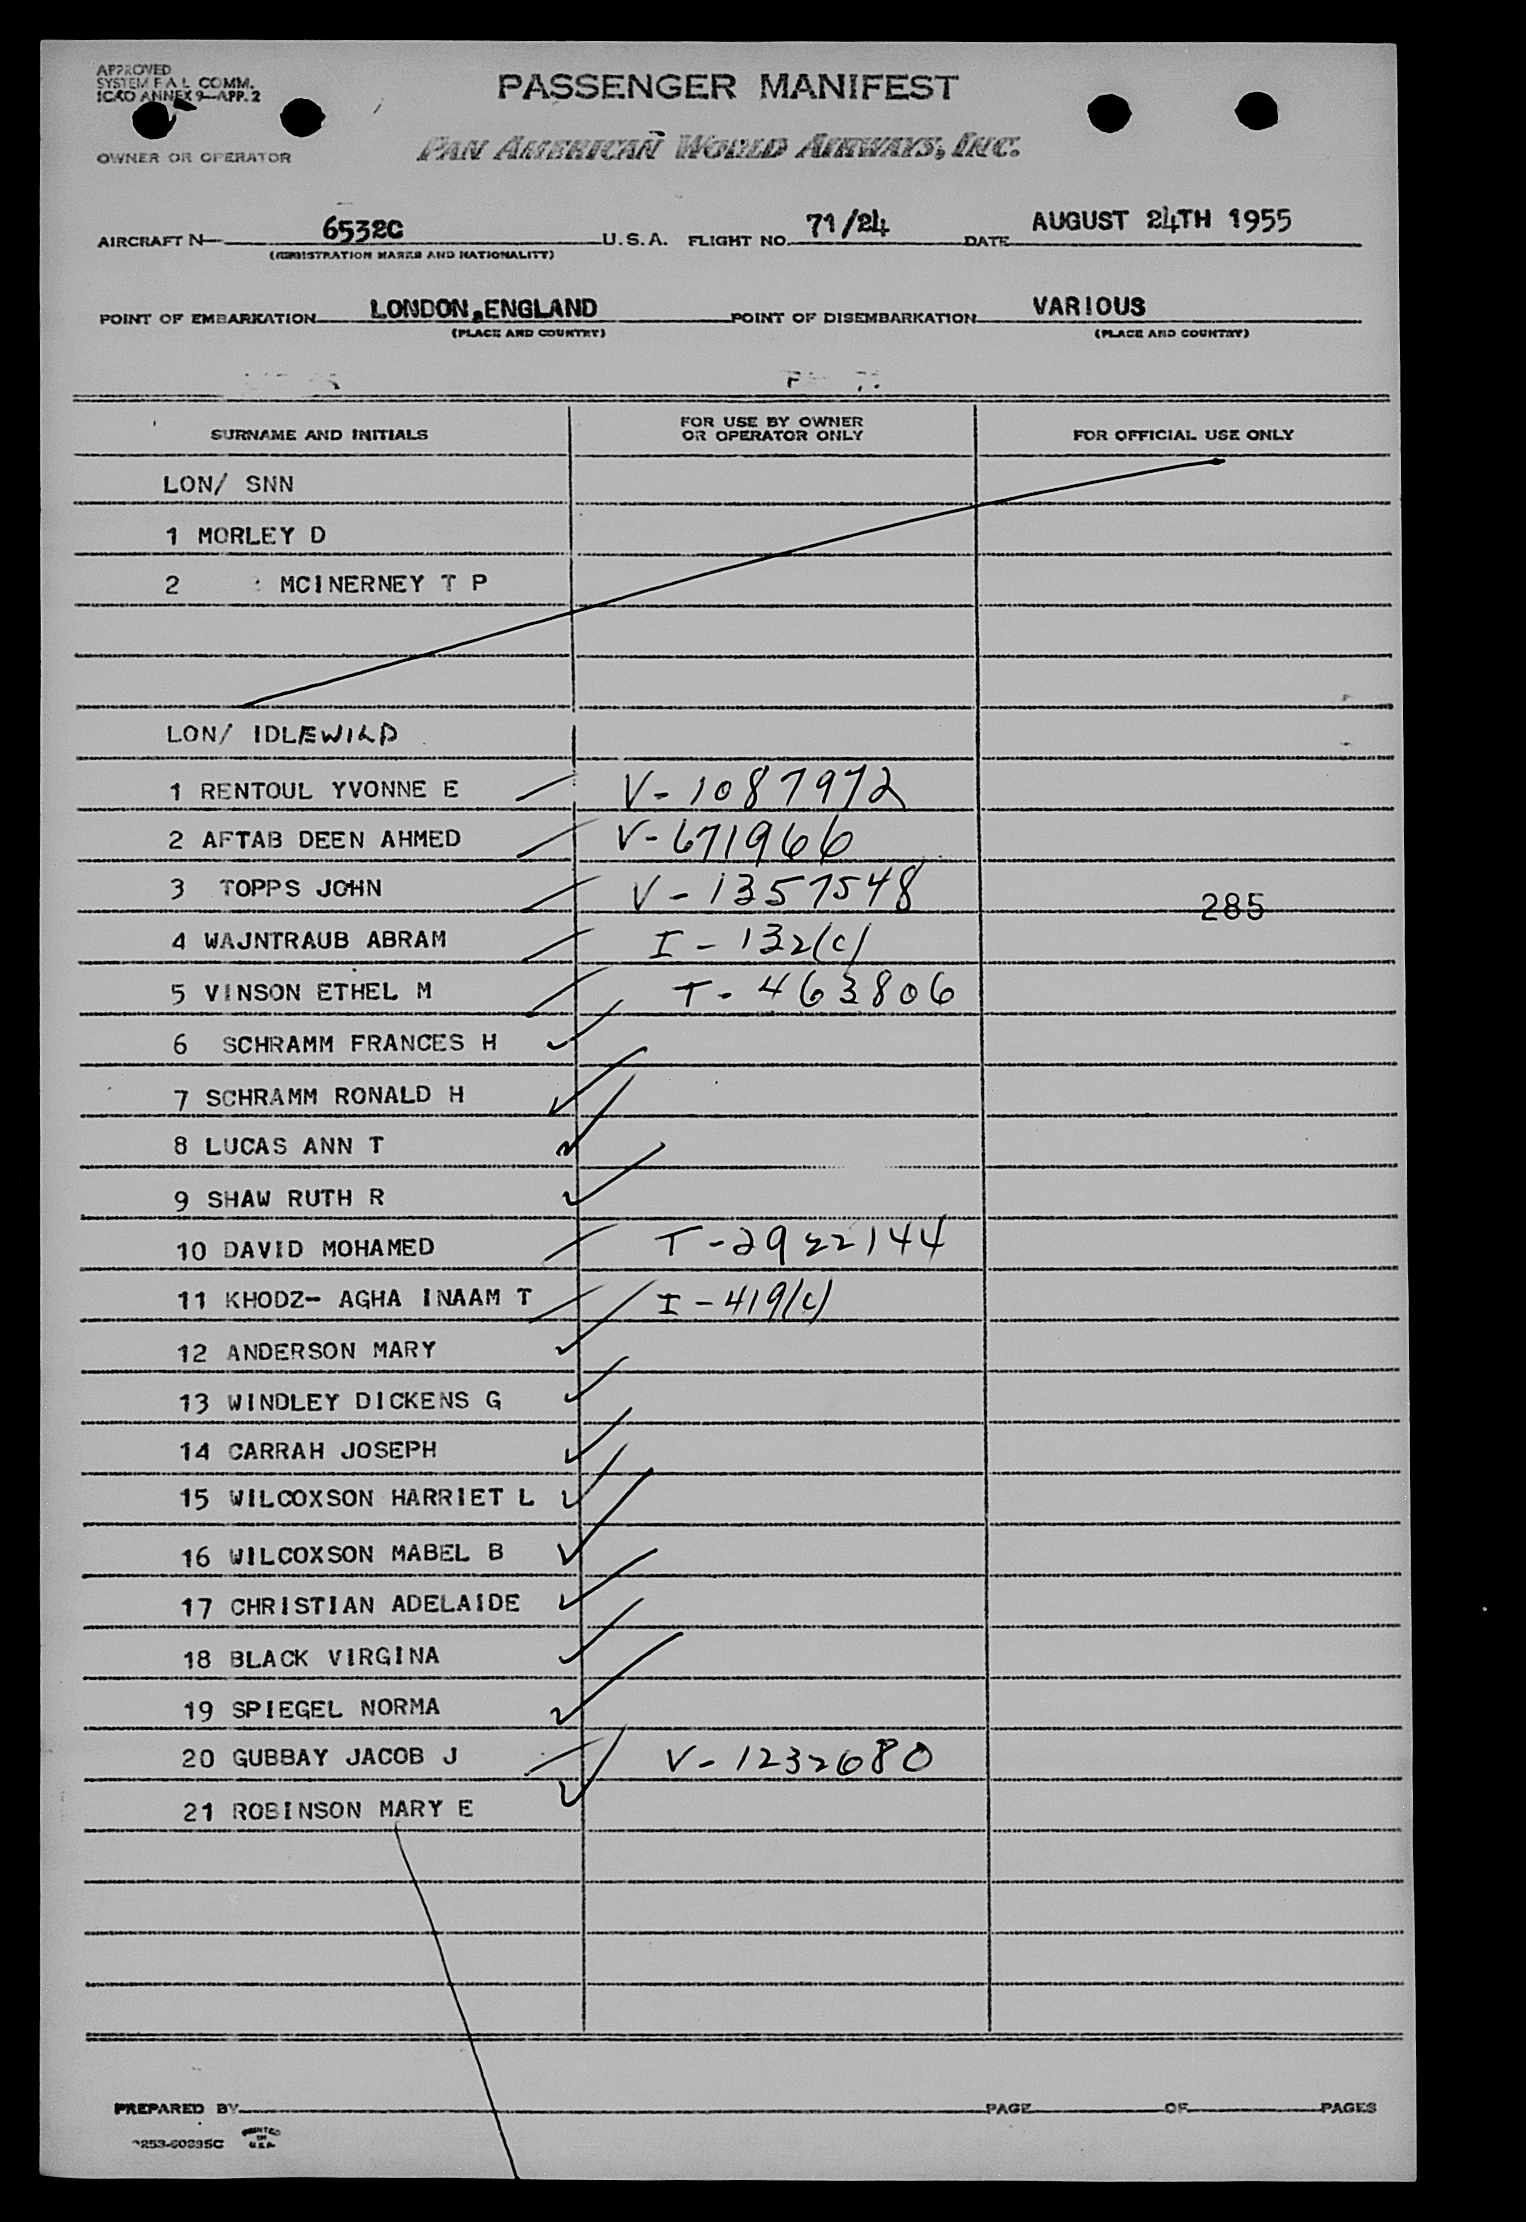 APPROVED
SYSTEM F A L COMM.
ICAO ANNEX 9—APP. 2
PASSENGER MANIFEST
OWNER OR OPERATOR
PAN AMERICAN WORLD AIRWAYS, INC.
AIRCRAFT N— 6532C U.S.A. FLIGHT NO. 71/24 DATE AUGUST 24TH 1955
(REGISTRATION MARKS AND NATIONALITY)
POINT OF EMBARKATION LONDON,ENGLAND POINT OF DISEMBARKATION VARIOUS
(PLACE AND COUNTRY) (PLACE AND COUNTRY)
SURNAME AND INITIALS FOR USE BY OWNER OR OPERATOR ONLY FOR OFFICIAL USE ONLY
LON/ SNN
1 MORLEY D
2 MCINERNEY T P
LON/ IDLEWILD
1 RENTOUL YVONNE E V-1087972
2 AFTAB DEEN AHMED V-671966
3 TOPPS JOHN V-1357548
285
4 WAJNTRAUB ABRAM I-132(c)
5 VINSON ETHEL M T-463806
6 SCHRAMM FRANCES H
7 SCHRAMM RONALD H
8 LUCAS ANN T
9 SHAW RUTH R
10 DAVID MOHAMED T-2922144
11 KHODZ- AGHA INAAM T I-419(c)
12 ANDERSON MARY
13 WINDLEY DICKENS G
14 CARRAH JOSEPH
15 WILCOXSON HARRIET L
16 WILCOXSON MABEL B
17 CHRISTIAN ADELAIDE
18 BLACK VIRGINA
19 SPIEGEL NORMA
20 GUBBAY JACOB J V-1232680
21 ROBINSON MARY E
PREPARED BY PAGE OF PAGES
PRINTED
IN
U.S.A.